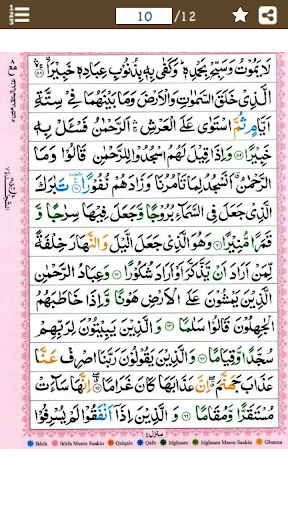 10 /12
لَا يَمُوْتُ وَسَبِّحْ بِحَمْدِهٖ ؕ وَكَفٰى بِهٖ بِذُنُوْبِ عِبَادِهٖ خَبِيْرًا ﴿۵۸﴾
الَّذِيْ خَلَقَ السَّمٰوٰتِ وَالْاَرْضَ وَمَا بَيْنَهُمَا فِيْ سِتَّةِ
اَيَّامٍ ثُمَّ اسْتَوٰى عَلَى الْعَرْشِ ۛۚ اَلرَّحْمٰنُ فَسْـَٔلْ بِهٖ
خَبِيْرًا ﴿۵۹﴾ وَاِذَا قِيْلَ لَهُمُ اسْجُدُوْا لِلرَّحْمٰنِ قَالُوْا وَمَا
الرَّحْمٰنُ ۗ اَنَسْجُدُ لِمَا تَاْمُرُنَا وَزَادَهُمْ نُفُوْرًا ﴿۶۰﴾ تَبٰرَكَ
الَّذِيْ جَعَلَ فِي السَّمَآءِ بُرُوْجًا وَّجَعَلَ فِيْهَا سِرٰجًا وَّ
قَمَرًا مُّنِيْرًا ﴿۶۱﴾ وَهُوَ الَّذِيْ جَعَلَ الَّيْلَ وَالنَّهَارَ خِلْفَةً
لِّمَنْ اَرَادَ اَنْ يَّذَّكَّرَ اَوْ اَرَادَ شُكُوْرًا ﴿۶۲﴾ وَعِبَادُ الرَّحْمٰنِ
الَّذِيْنَ يَمْشُوْنَ عَلَى الْاَرْضِ هَوْنًا وَّاِذَا خَاطَبَهُمُ
الْجٰهِلُوْنَ قَالُوْا سَلٰمًا ﴿۶۳﴾ وَالَّذِيْنَ يَبِيْتُوْنَ لِرَبِّهِمْ
سُجَّدًا وَّقِيَامًا ﴿۶۴﴾ وَالَّذِيْنَ يَقُوْلُوْنَ رَبَّنَا اصْرِفْ عَنَّا
عَذَابَ جَهَنَّمَ ۖ اِنَّ عَذَابَهَا كَانَ غَرَامًا ﴿۶۵﴾ اِنَّهَا سَآءَتْ
مُسْتَقَرًّا وَّمُقَامًا ﴿۶۶﴾ وَالَّذِيْنَ اِذَآ اَنْفَقُوْا لَمْ يُسْرِفُوْا
Ikhfa Ikhfa Meem Saakin Qalqala Qalb Idghaam Idghaam Meem Saakin Ghunna